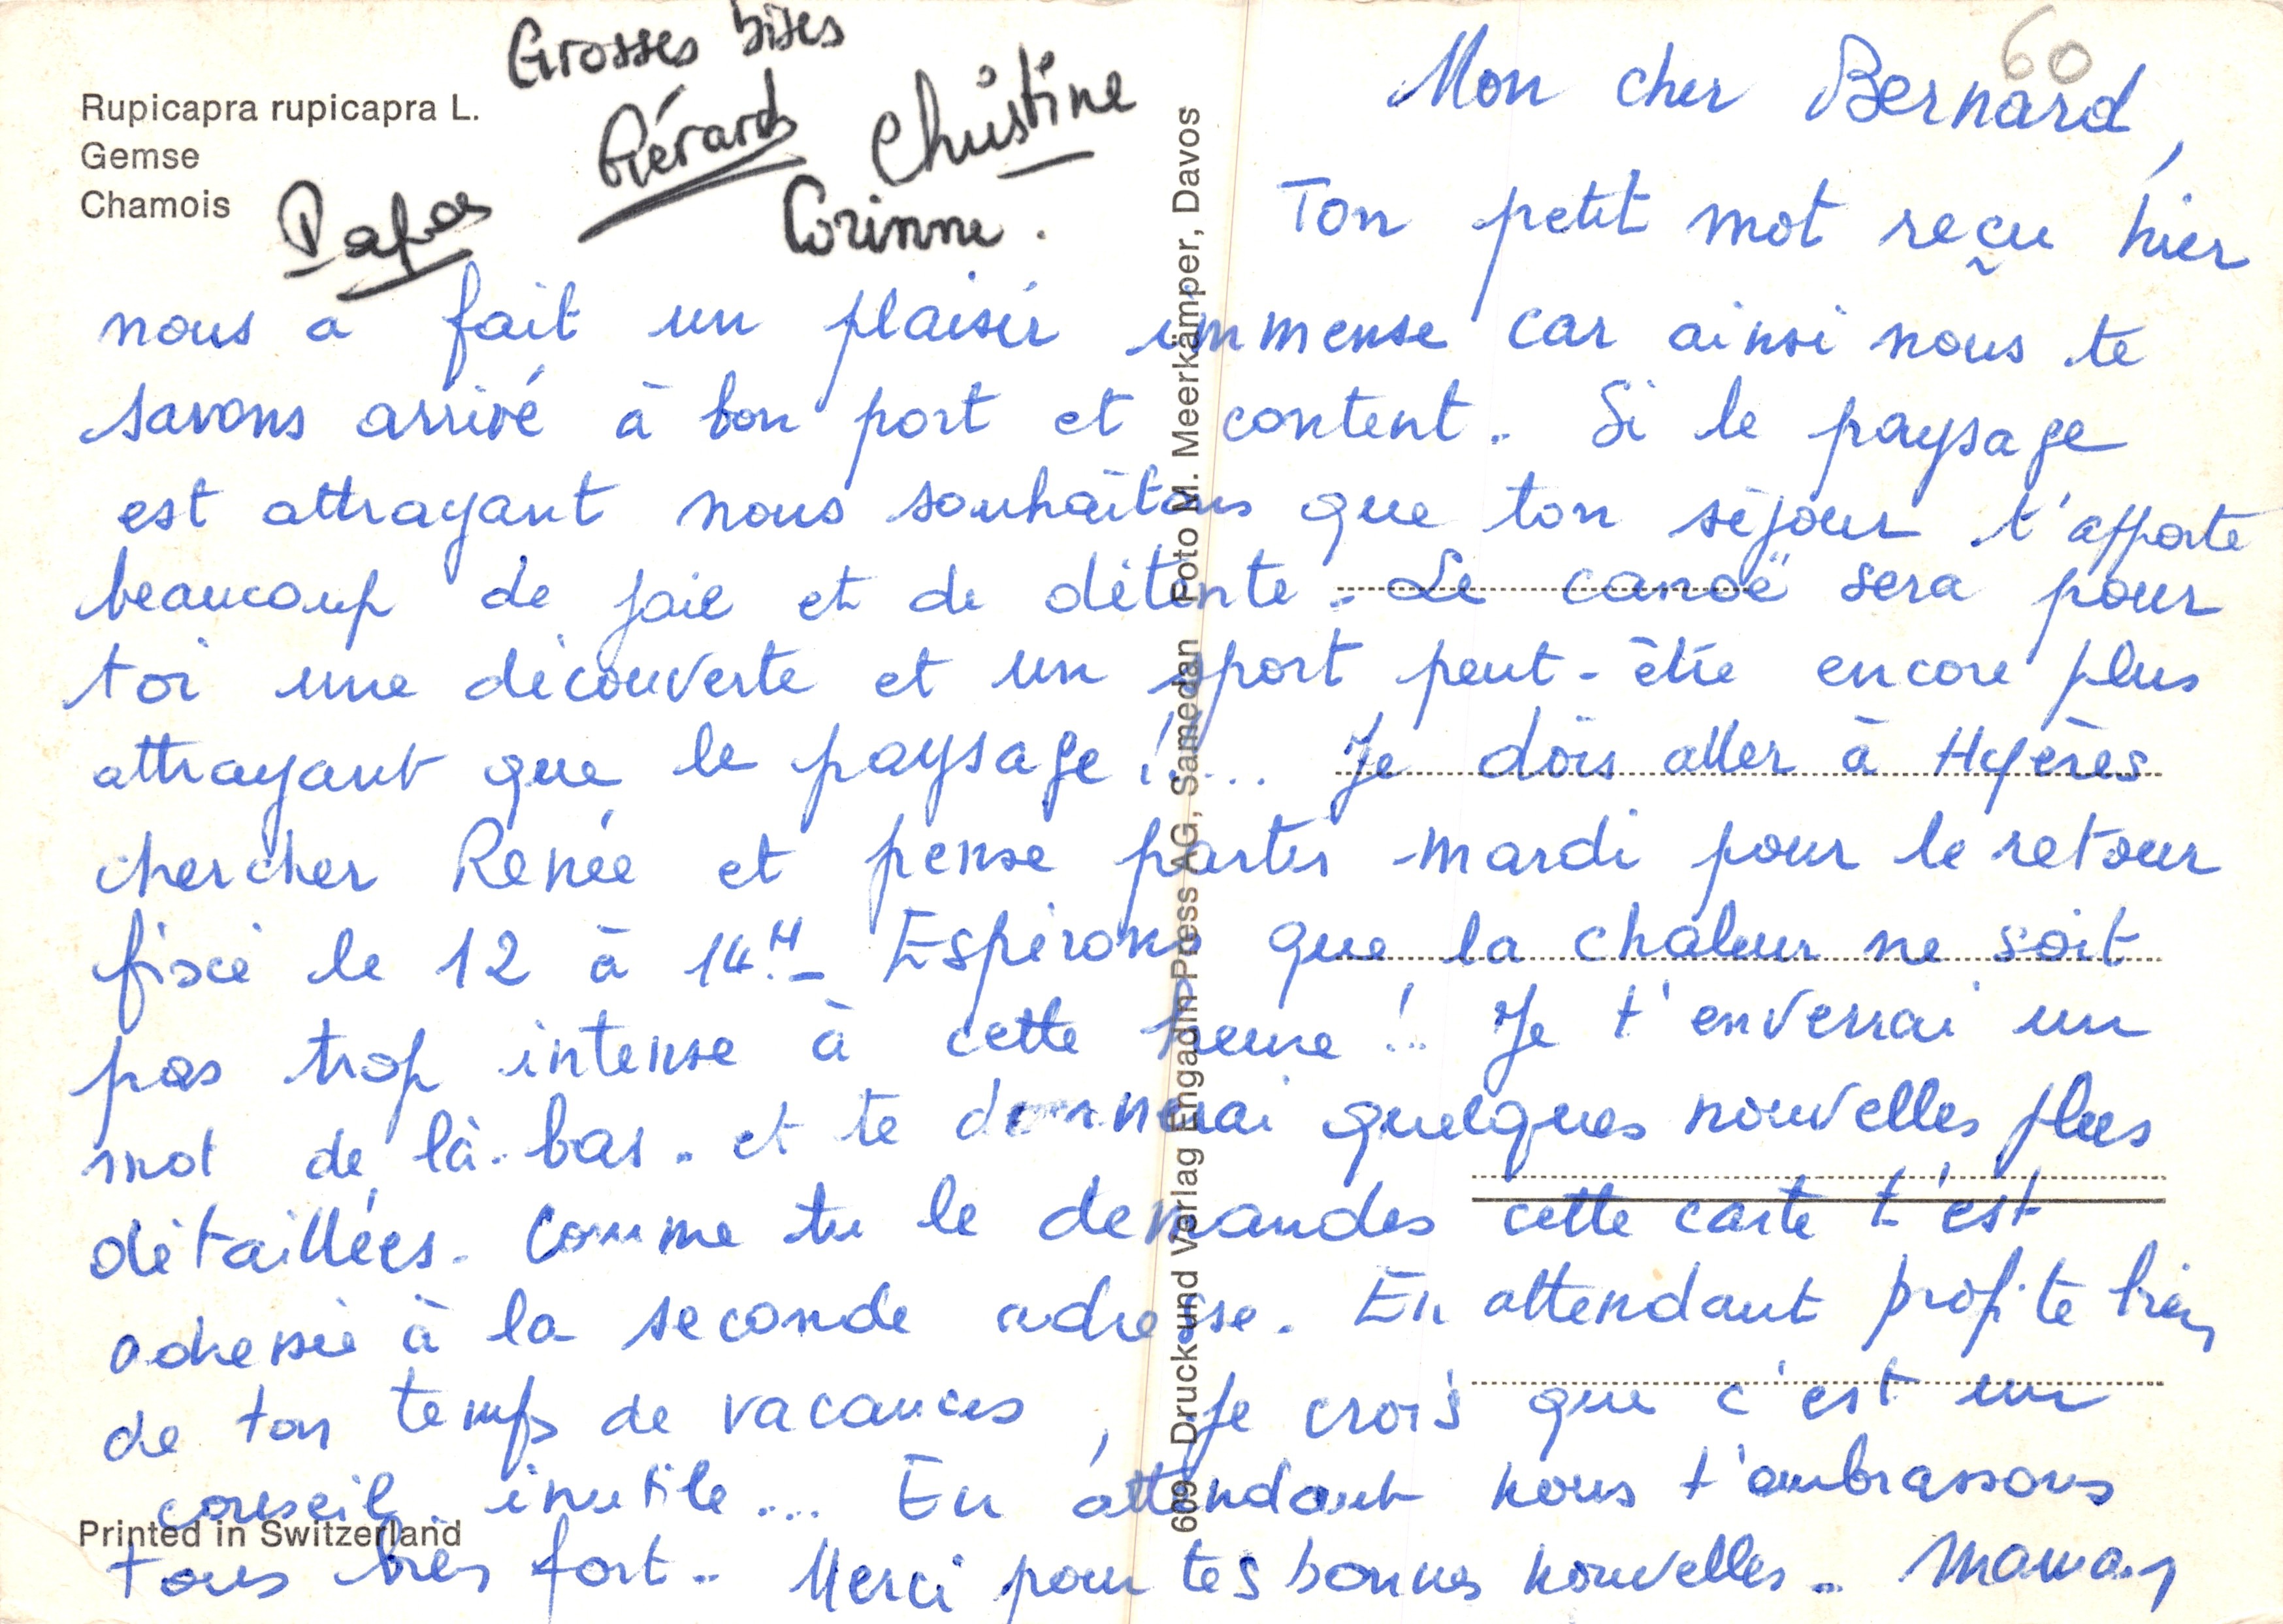 Rupicapra rupicapra L.
Gemse
Chamois
Grosses bises
Gérard
Christine
Papa
Corinne.
60
Mon cher Bernard,
Ton petit mot reçu hier
nous a fait un plaisir immense car ainsi nous te
savons arrivé à bon port et content. Si le paysage
est attrayant nous souhaitons que ton séjour t'apporte
beaucoup de joie et de détente. Le canoë sera pour
toi une découverte et un sport peut-être encore plus
attrayant que le paysage !... Je dois aller à Hyères
chercher Renée et pense partir mardi pour le retour
fixé le 12 à 14H. Espérons que la chaleur ne soit
pas trop intense à cette heure !.. Je t'enverrai un
mot de là-bas. et te donnerai quelques nouvelles plus
détaillées. Comme tu le demandes cette carte t'est
adressée à la seconde adresse. En attendant profite bien
de ton temps de vacances, Je crois que c'est un
conseil inutile... En attendant nous t'embrassons
tous très fort.. Merci pour tes bonnes nouvelles.. Maman
Printed in Switzerland
609 Druck und Verlag Engadin Press AG, Samedan Foto M. Meerkämper, Davos